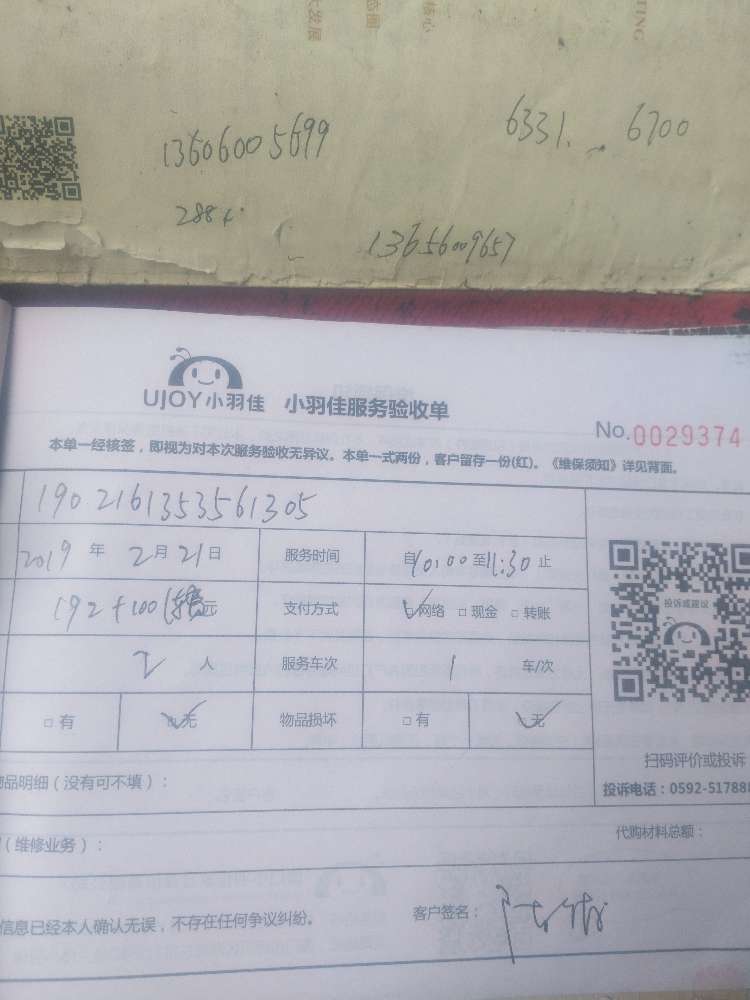 大发展
态圈
核心
TING
13606005699
6331. 6700
288+
13656009657
UJOY小羽佳 小羽佳服务验收单
No.0029374
本单一经核签，即视为对本次服务验收无异议。本单一式两份，客户留存一份(红)。《维保须知》详见背面。
1902161353561305
2019年2月21日 服务时间 自10:00至11:30止
192+100 元 支付方式 网络 现金 转账
2人 服务车次 1 车/次
有 无 物品损坏 有 无
投诉或建议
扫码评价或投诉
投诉电话：0592-51788
物品明细（没有可不填）：
（维修业务）： 代购材料总额：
信息已经本人确认无误，不存在任何争议纠纷。 客户签名：